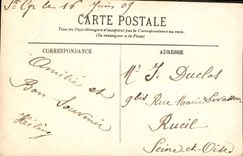 St Cyr le 16 Juin 09
CARTE POSTALE
Tous les Pays étrangers n'acceptent pas la Correspondance au recto.
(Se renseigner à la Poste)
CORRESPONDANCE
ADRESSE
Amitié et
Bon Souvenir
M. J. Duclos
9 bis Rue Marie
Rueil
Seine-et-Oise